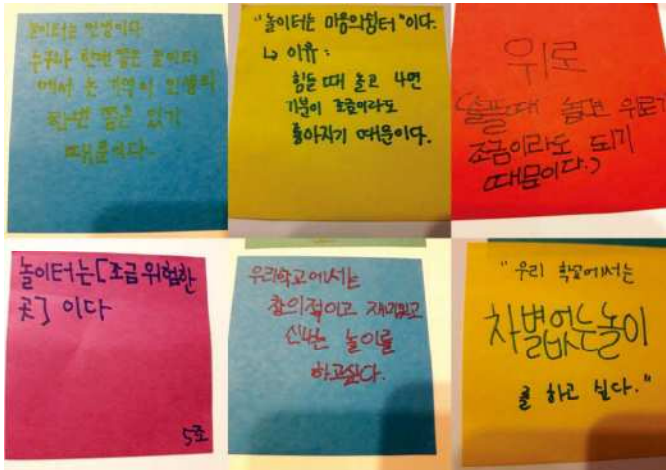 놀이터는 인생이다
누구나 한번 쯤은 놀이터
에서 논 기억이 인생의
한번 쯤은 있기
때문이다.
"놀이터는 마음의쉼터"이다.
↳ 이유:
힘들 때 놀고 나면
기분이 조금이라도
좋아지기 때문이다.
위로
(슬플때 놀면 위로가
조금이라도 되기
때문이다.)
놀이터는[조금위험한
곳] 이다
5조
우리학교에서는
창의적이고 재미있고
신나는 놀이를
하고싶다.
"우리 학교에서는
차별없는놀이
를 하고 싶다."